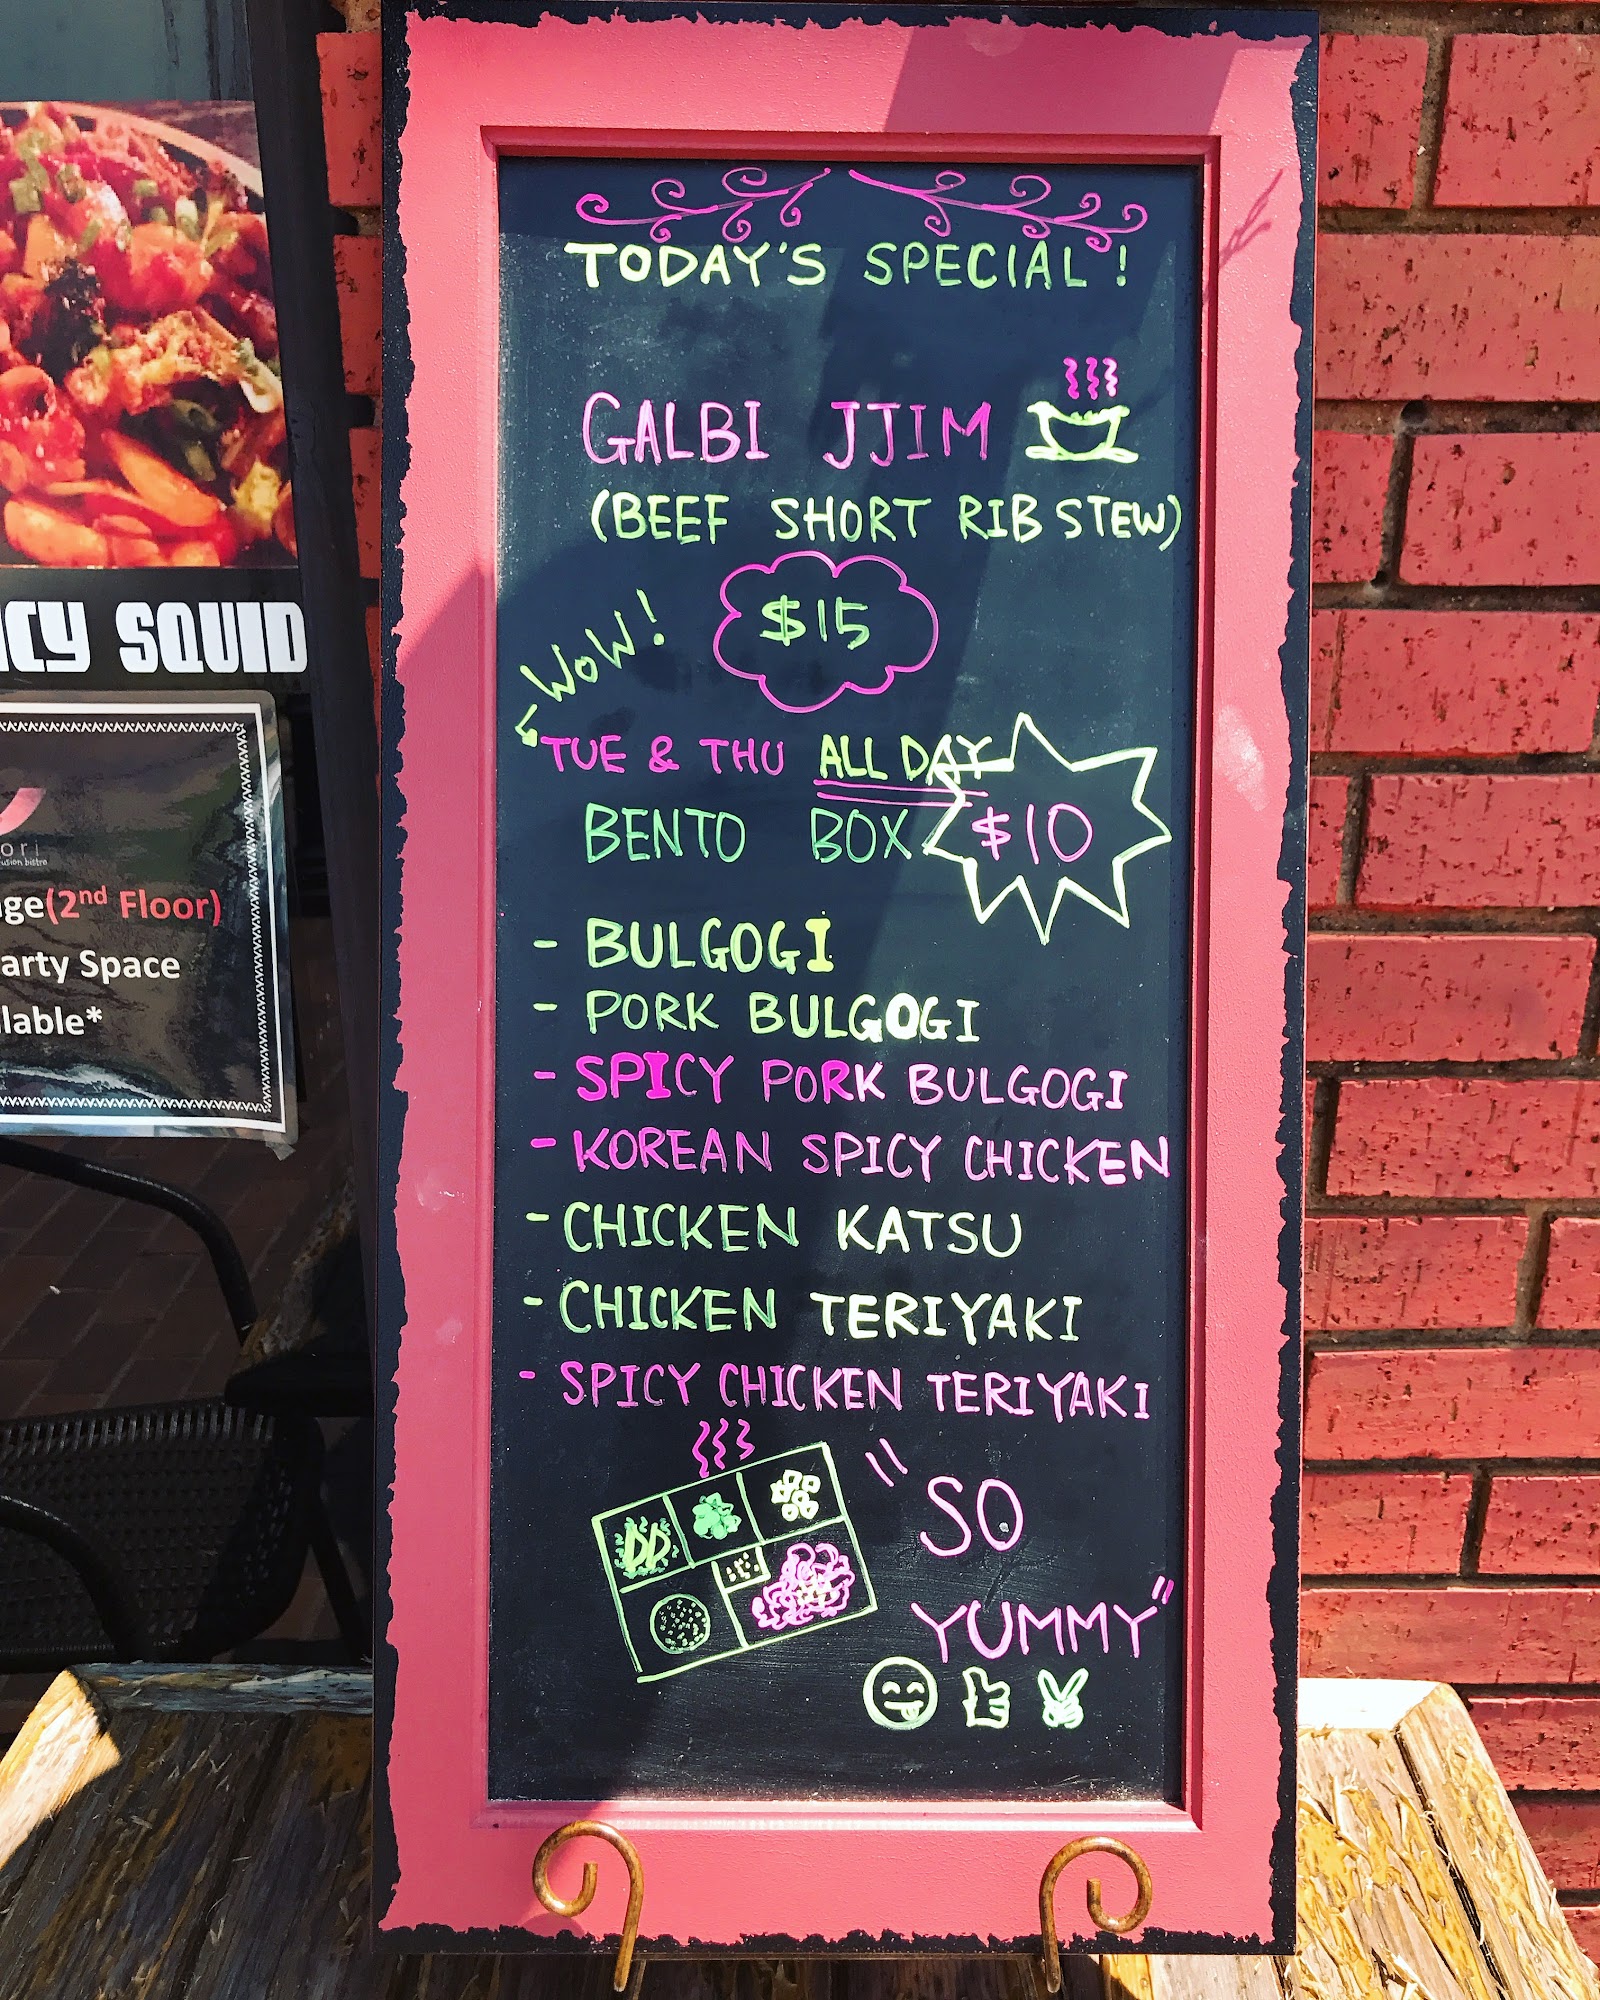 TODAY'S SPECIAL!
GALBI JJIM
(BEEF SHORT RIB STEW)
$15
WOW!
TUE & THU ALL DAY
BENTO BOX $10
- BULGOGI
- PORK BULGOGI
- SPICY PORK BULGOGI
- KOREAN SPICY CHICKEN
- CHICKEN KATSU
- CHICKEN TERIYAKI
- SPICY CHICKEN TERIYAKI
"SO
YUMMY"
SQUID
(2nd Floor)
Space